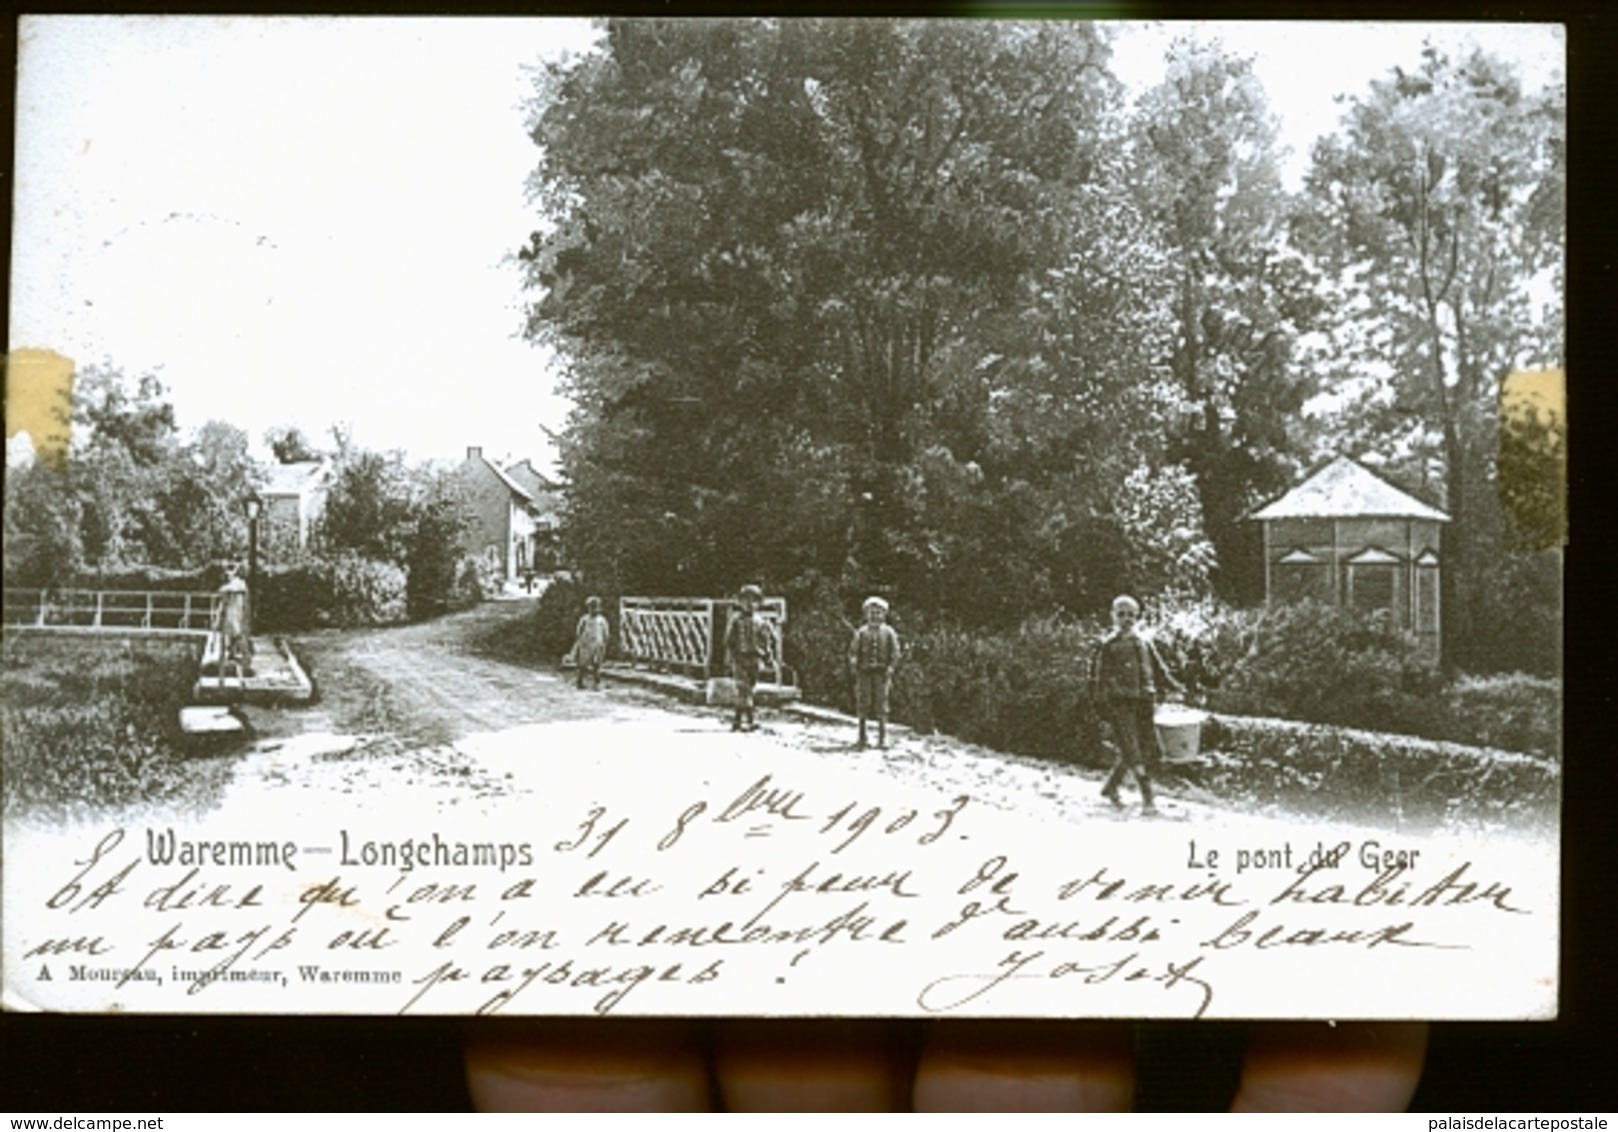 Waremme — Longchamps
Le pont du Geer
31 8bre 1903.
Et dire qu'on a eu si peur de venir habiter
un pays où l'on rencontre d'aussi beaux
paysages !
A Moureau, imprimeur, Waremme
delcampe.net
palaisdelacartepostale